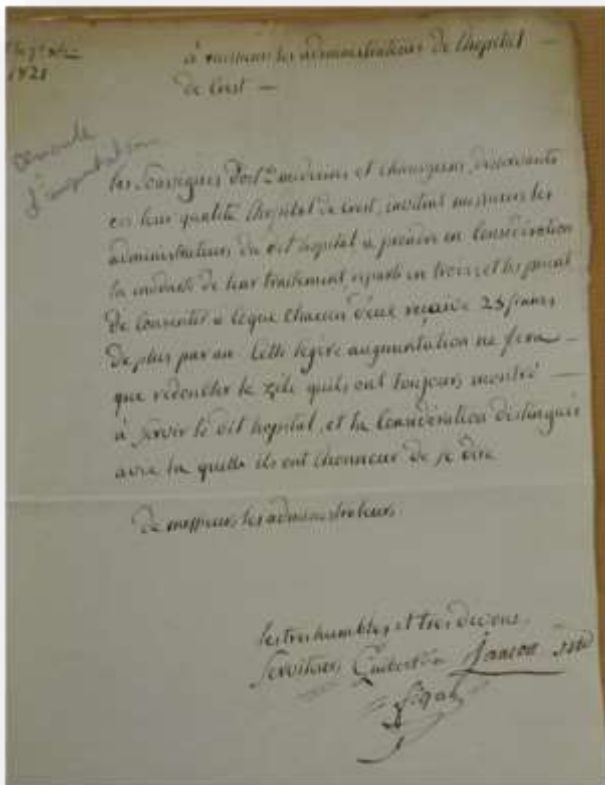 1821
à messieurs les administrateurs de l'hopital
de Crest
Demande
d'augmentation
les Soussignés Doct. medecins et chirurgiens, desservants
en leur qualité l'hopital de Crest, invitent messieurs les
administrateurs du dit hopital a prendre en Consideration
la modicité de leur traitement, reparti en trois, et les prient
de Consentir a ceque Chacun d'eux reçoive 25 francs
de plus par an. Cette légère augmentation ne fera
que redoubler le zèle quils ont toujours montré
à servir le dit hopital, et la Consideration distinguée
avec la quelle ils ont l'honneur de se dire
De messieurs les administrateurs
les tres humbles et tres devoués
Serviteurs